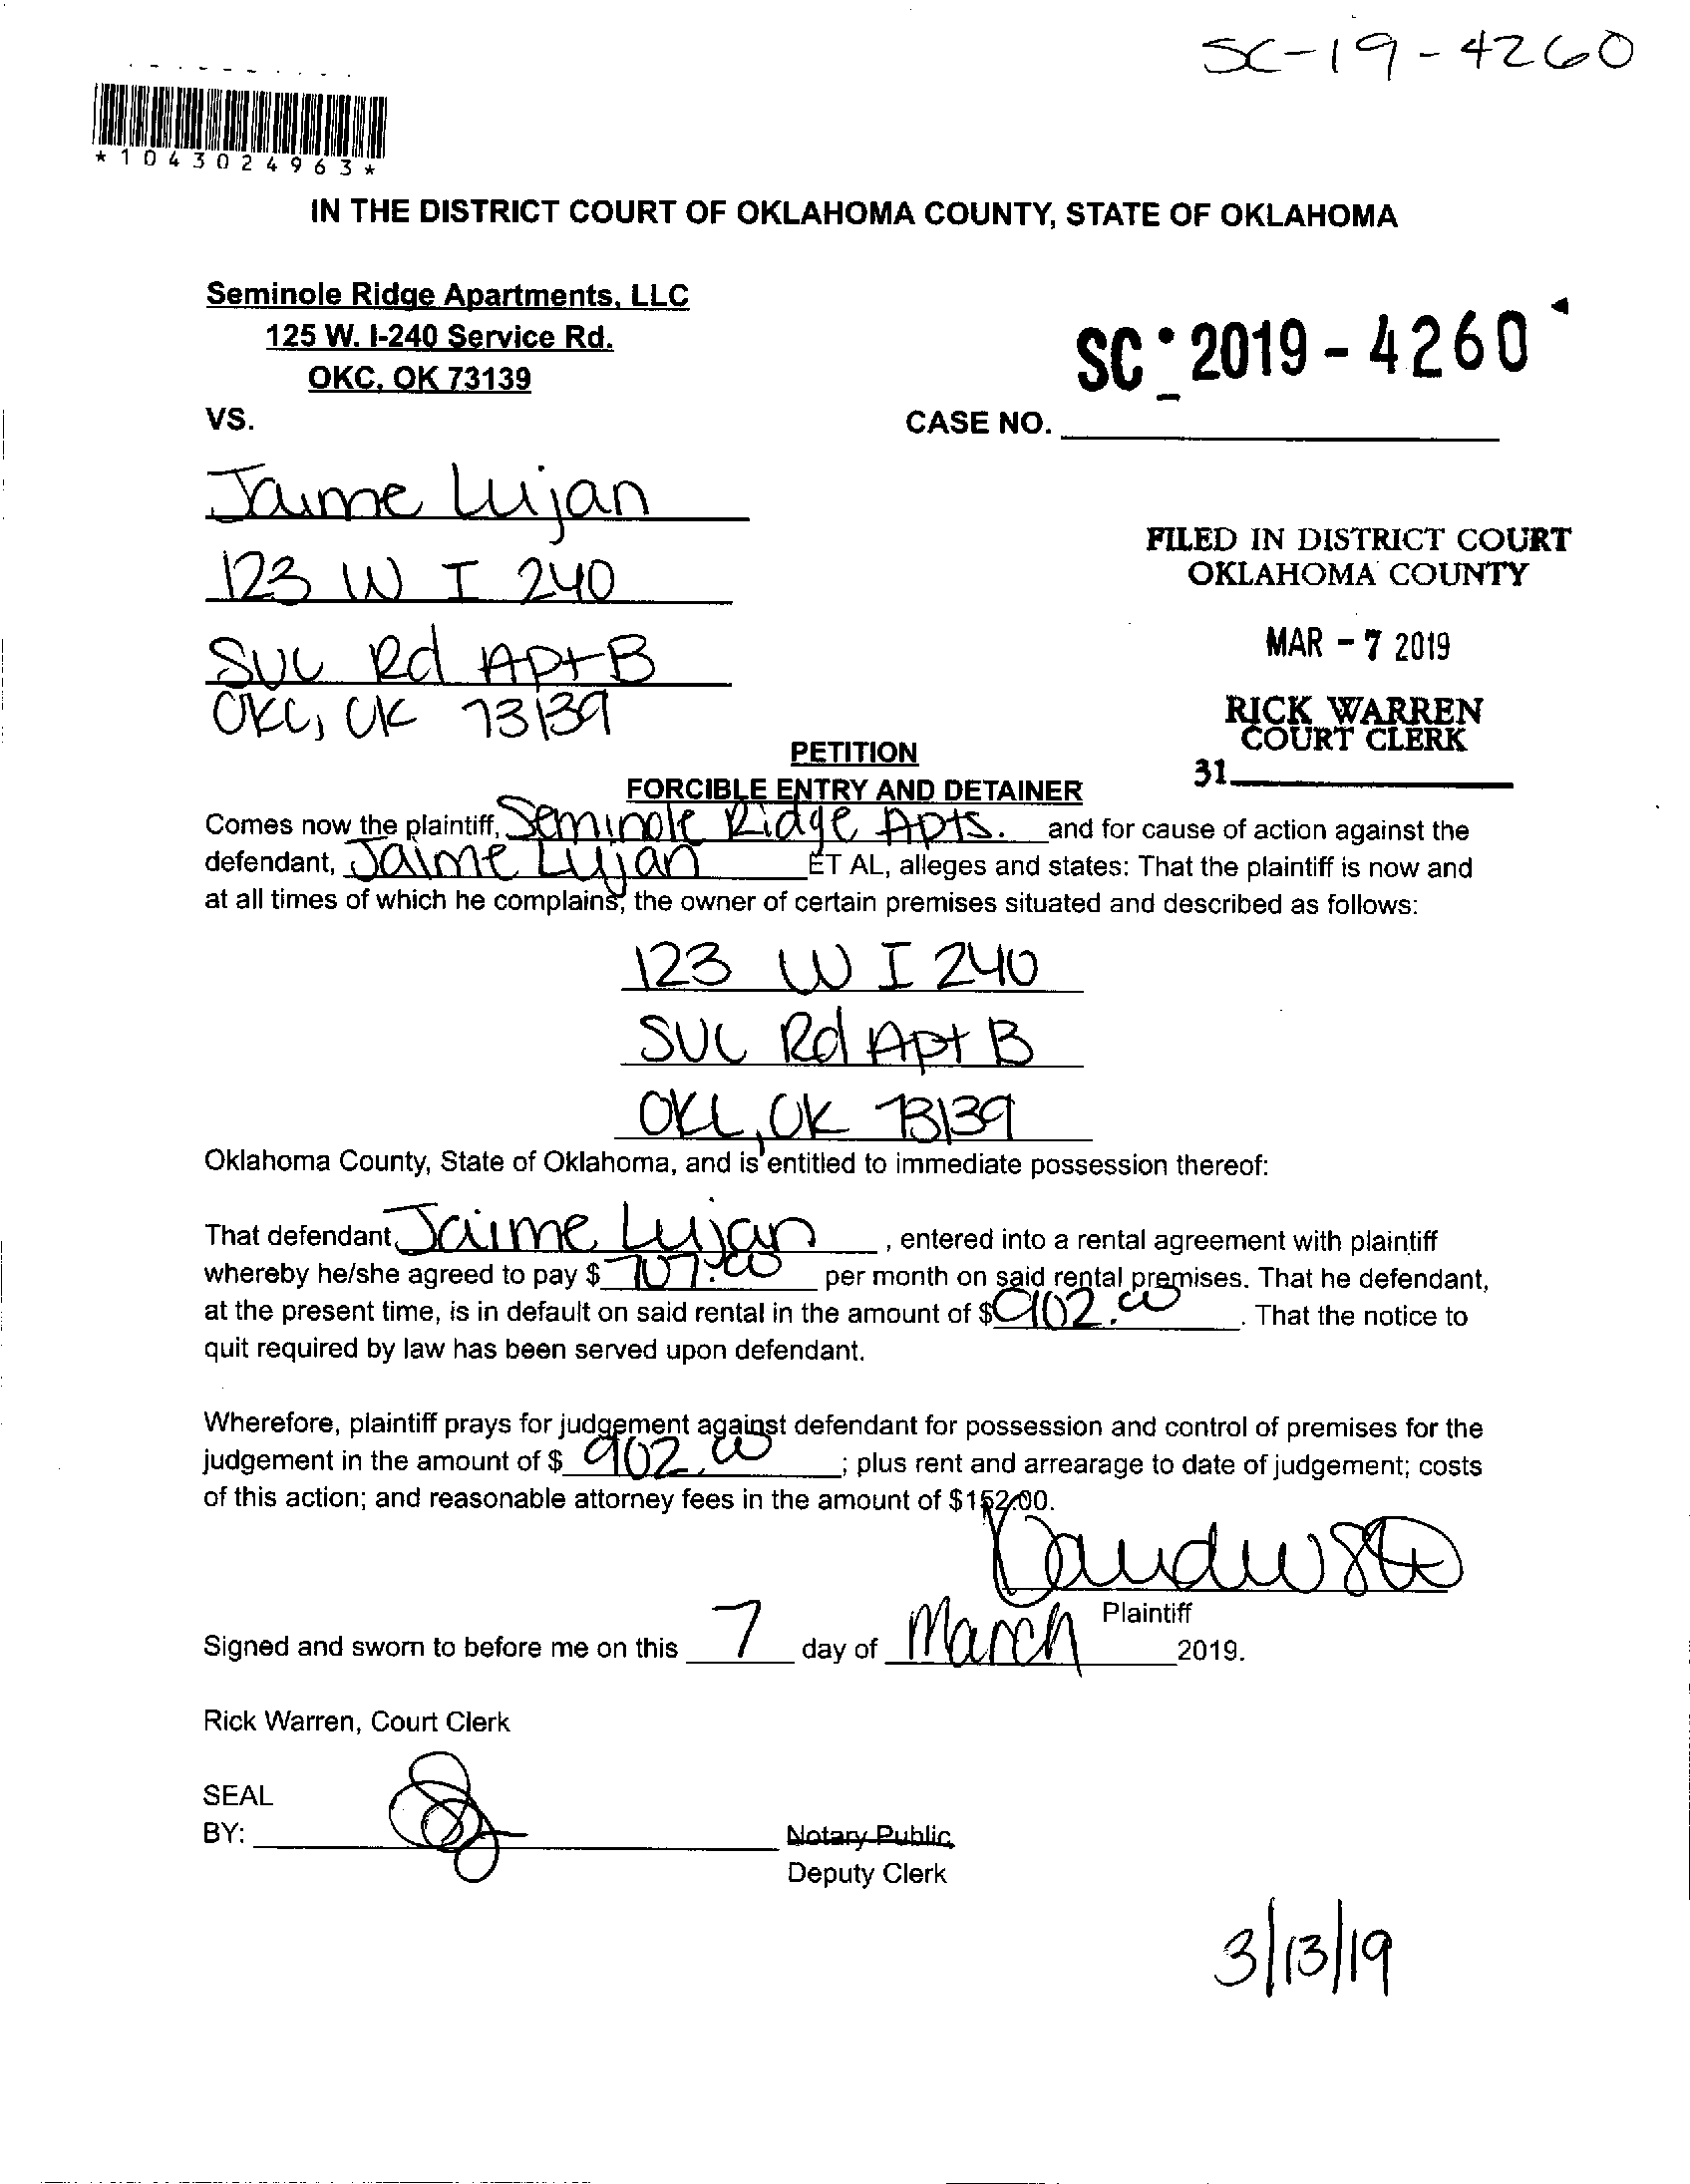 SC-19-4260
*1043024963*
IN THE DISTRICT COURT OF OKLAHOMA COUNTY, STATE OF OKLAHOMA
Seminole Ridge Apartments, LLC
125 W. I-240 Service Rd.
OKC, OK 73139
SC 2019-4260
VS.
CASE NO.
Jaime Lujan
123 W I 240
SVC Rd Apt B
OKC, OK 73139
FILED IN DISTRICT COURT
OKLAHOMA COUNTY
MAR - 7 2019
RICK WARREN
COURT CLERK
31
PETITION
FORCIBLE ENTRY AND DETAINER
Comes now the plaintiff, Seminole Ridge Apts. and for cause of action against the
defendant, Jaime Lujan ET AL, alleges and states: That the plaintiff is now and
at all times of which he complains, the owner of certain premises situated and described as follows:
123 W I 240
SVC Rd Apt B
OKC, OK 73139
Oklahoma County, State of Oklahoma, and is entitled to immediate possession thereof:
That defendant, Jaime Lujan, entered into a rental agreement with plaintiff
whereby he/she agreed to pay $ 707.00 per month on said rental premises. That he defendant,
at the present time, is in default on said rental in the amount of $ 902.00. That the notice to
quit required by law has been served upon defendant.
Wherefore, plaintiff prays for judgement against defendant for possession and control of premises for the
judgement in the amount of $ 902.00; plus rent and arrearage to date of judgement; costs
of this action; and reasonable attorney fees in the amount of $152.00.
Plaintiff
Signed and sworn to before me on this 7 day of March 2019.
Rick Warren, Court Clerk
SEAL
BY:
Notary Public
Deputy Clerk
3/13/19